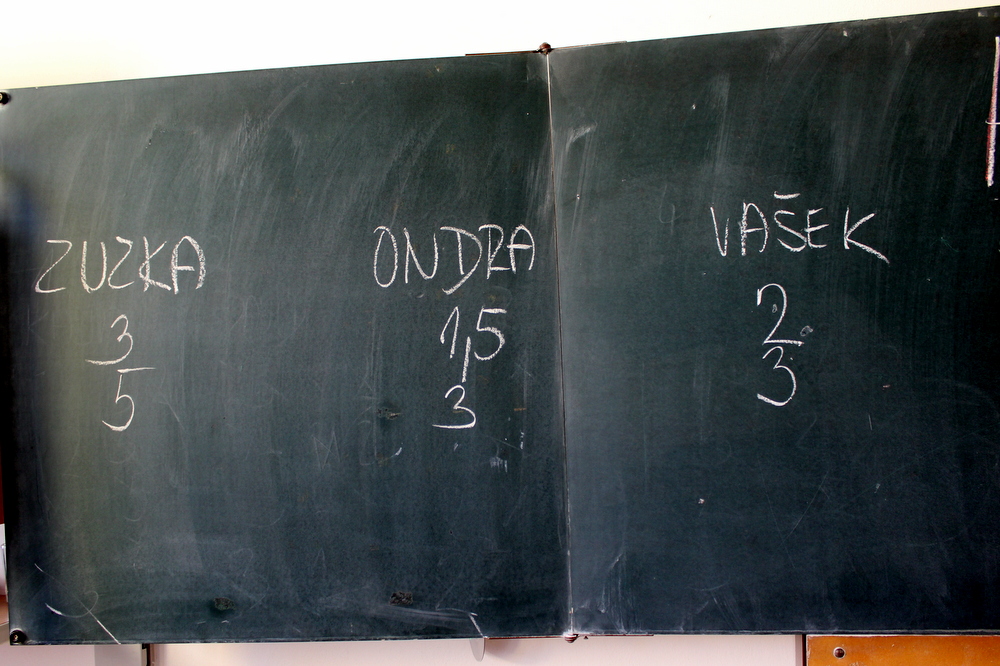 ZUZKA
3
5
ONDRA
1,5
3
VAŠEK
2
3